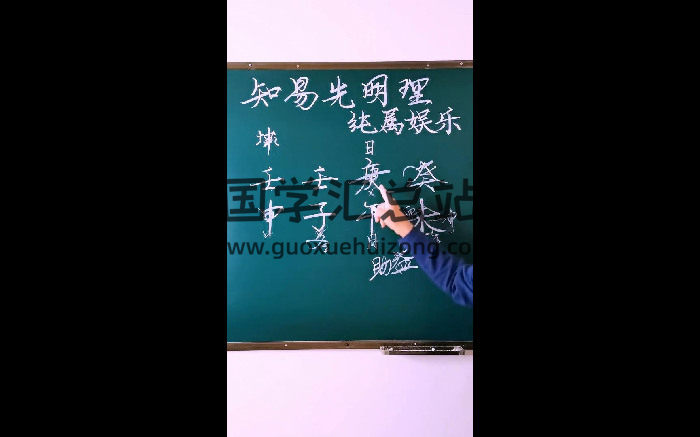 知易先明理
纯属娱乐
日
壬 壬 庚 癸
申 子 午 未
国学汇总站
www.guoxuehuizong.com
助益